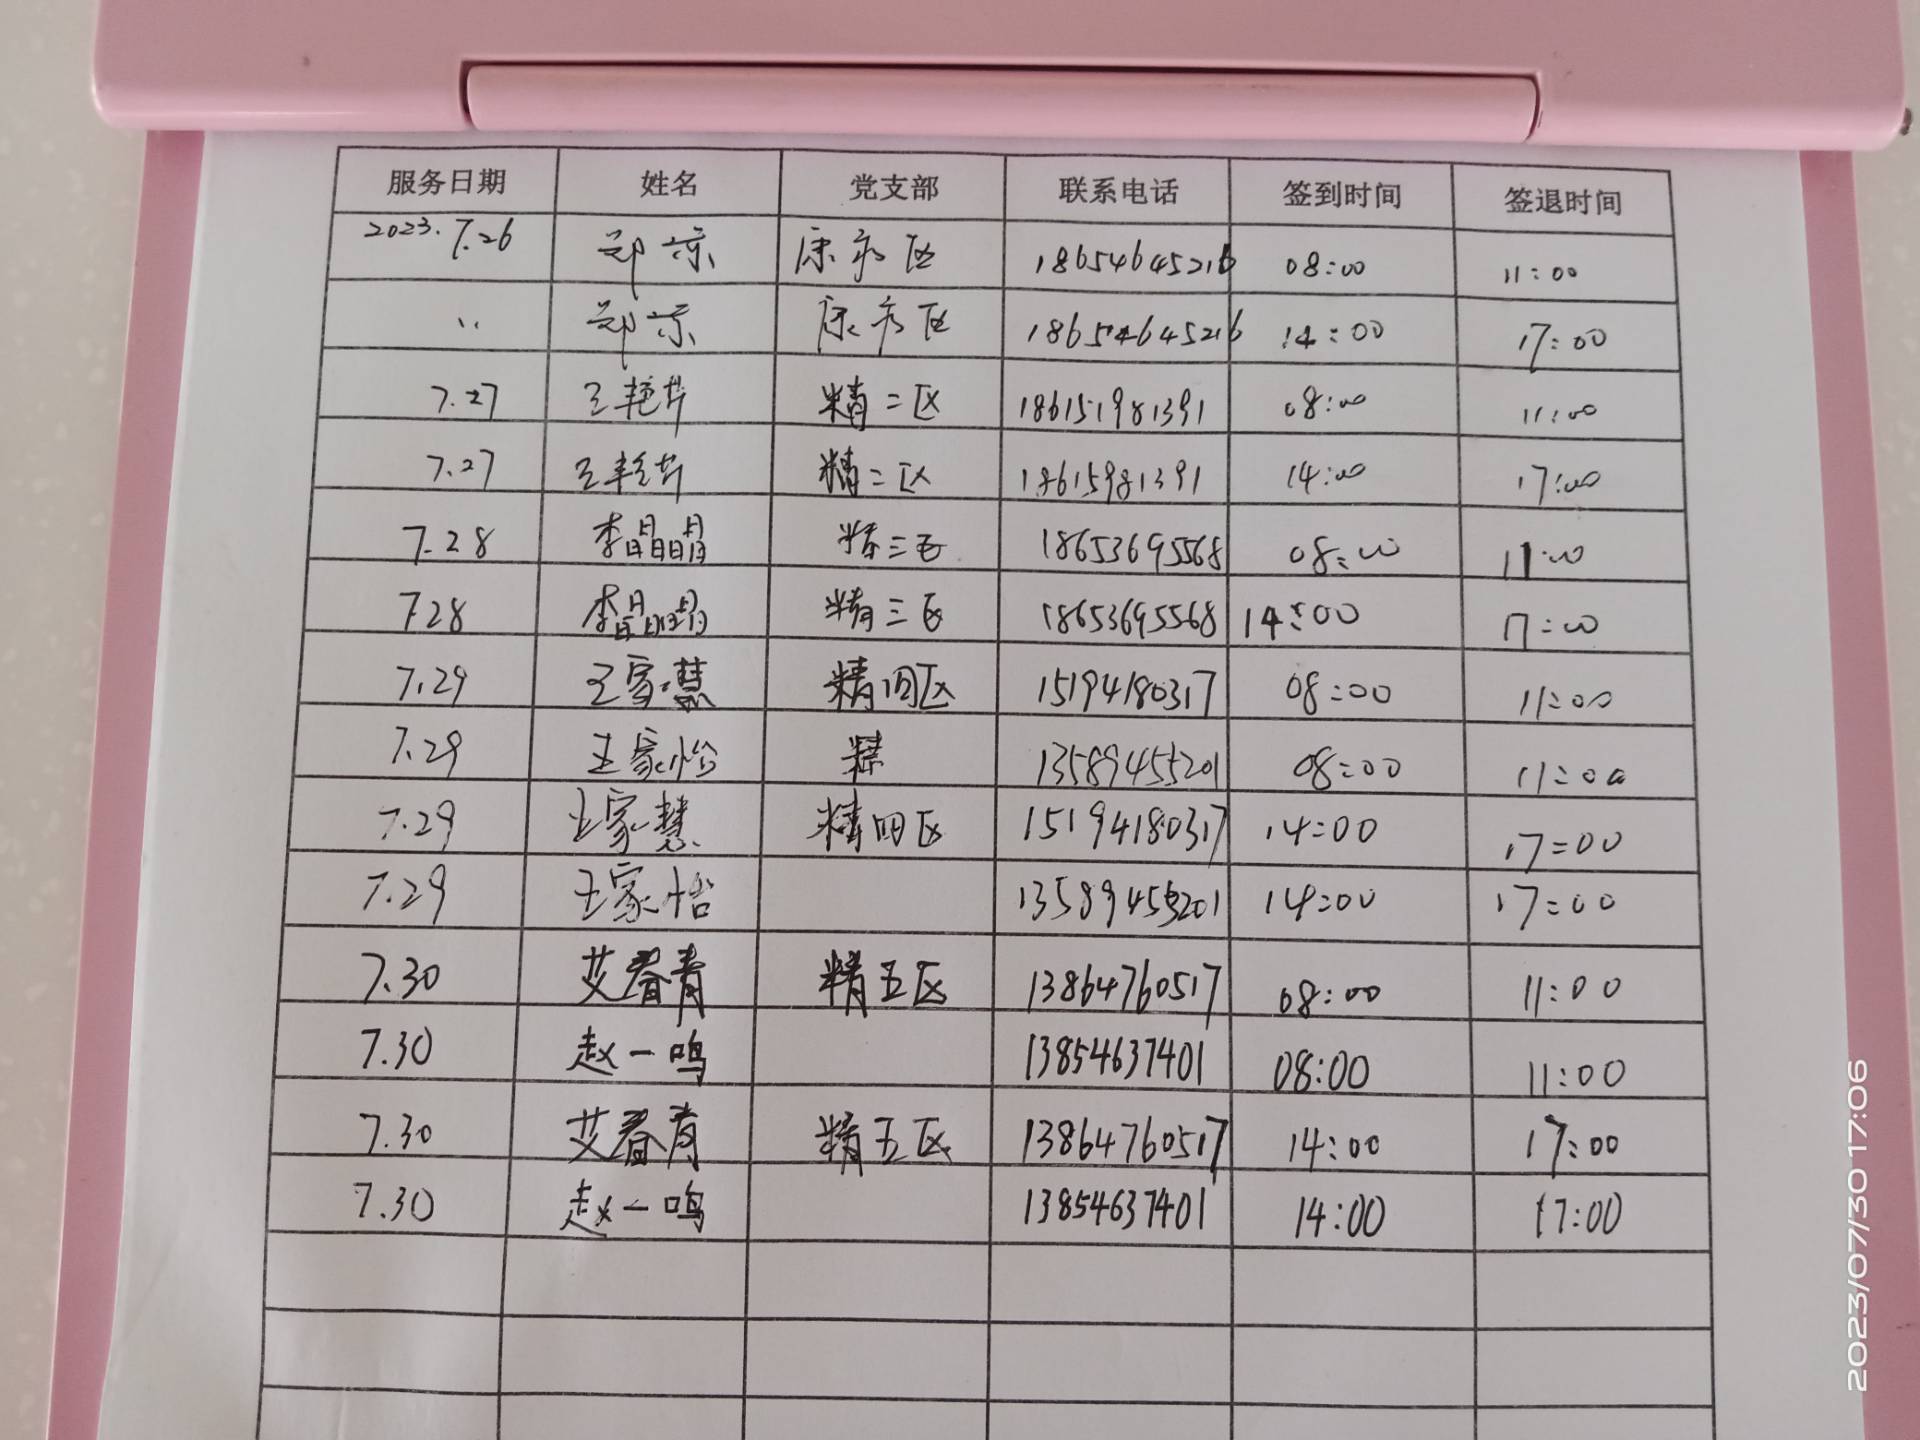 服务日期 姓名 党支部 联系电话 签到时间 签退时间
2023.7.26 郑凉 康亦区 18654645216 08:00 11:00
〃 郑凉 康亦区 18654645216 14:00 17:00
7.27 王艳芹 精二区 186151981391 08:00 11:00
7.27 王艳芹 精二区 18615981391 14:00 17:00
7.28 李晶晶 精三区 18653695568 08:00 11:00
7.28 李晶晶 精三区 18653695568 14:00 17:00
7.29 王家慧 精四区 15194180317 08:00 11:00
7.29 王家怡 精 13589455201 08:00 11:00
7.29 王家慧 精四区 15194180317 14:00 17:00
7.29 王家怡 13589455201 14:00 17:00
7.30 艾春青 精五区 13864760517 08:00 11:00
7.30 赵一鸣 13854637401 08:00 11:00
7.30 艾春青 精五区 13864760517 14:00 17:00
7.30 赵一鸣 13854637401 14:00 17:00
2023/07/30 17:06